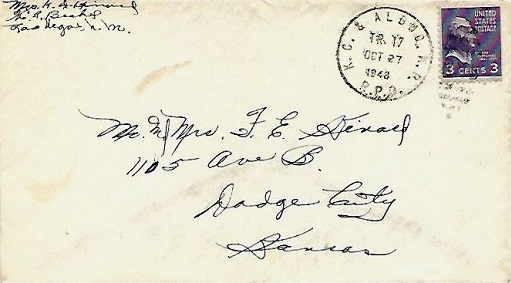 Mrs. H. D.
Las Vegas, N. M.
K.C. & ALBUQ.
TR. 17
OCT 27
1948
R.P.O.
UNITED
STATES
POSTAGE
3 CENTS 3
Mr. & Mrs. F. E.
1105 Ave B.
Dodge City
Kansas